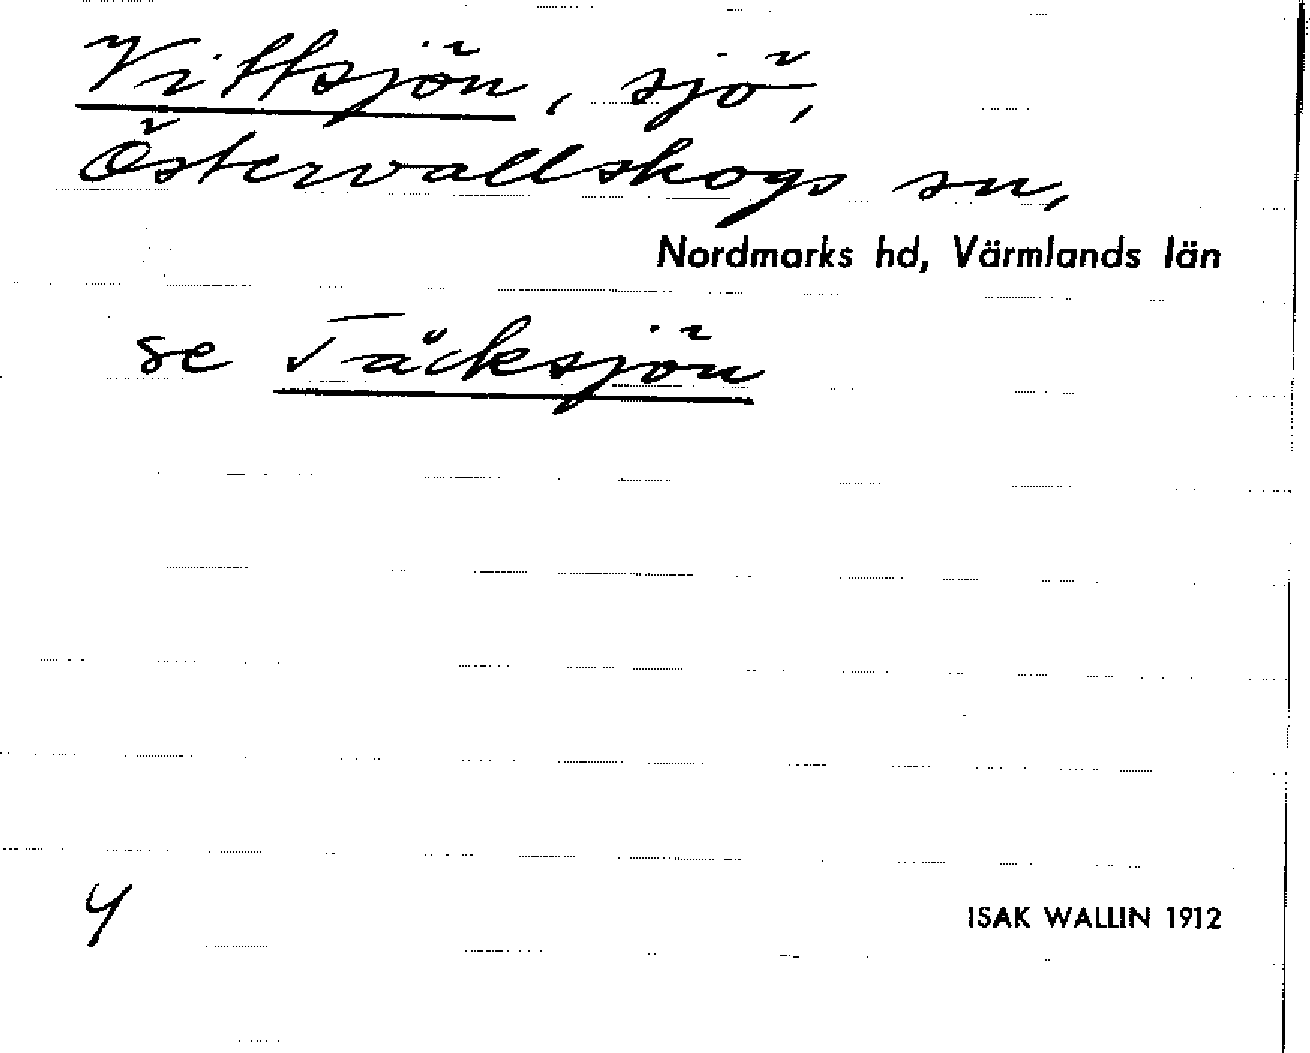 Vittsjön, sjö,
Östervallskogs sn,
Nordmarks hd, Värmlands län
se Täcksjön
4
ISAK WALLIN 1912